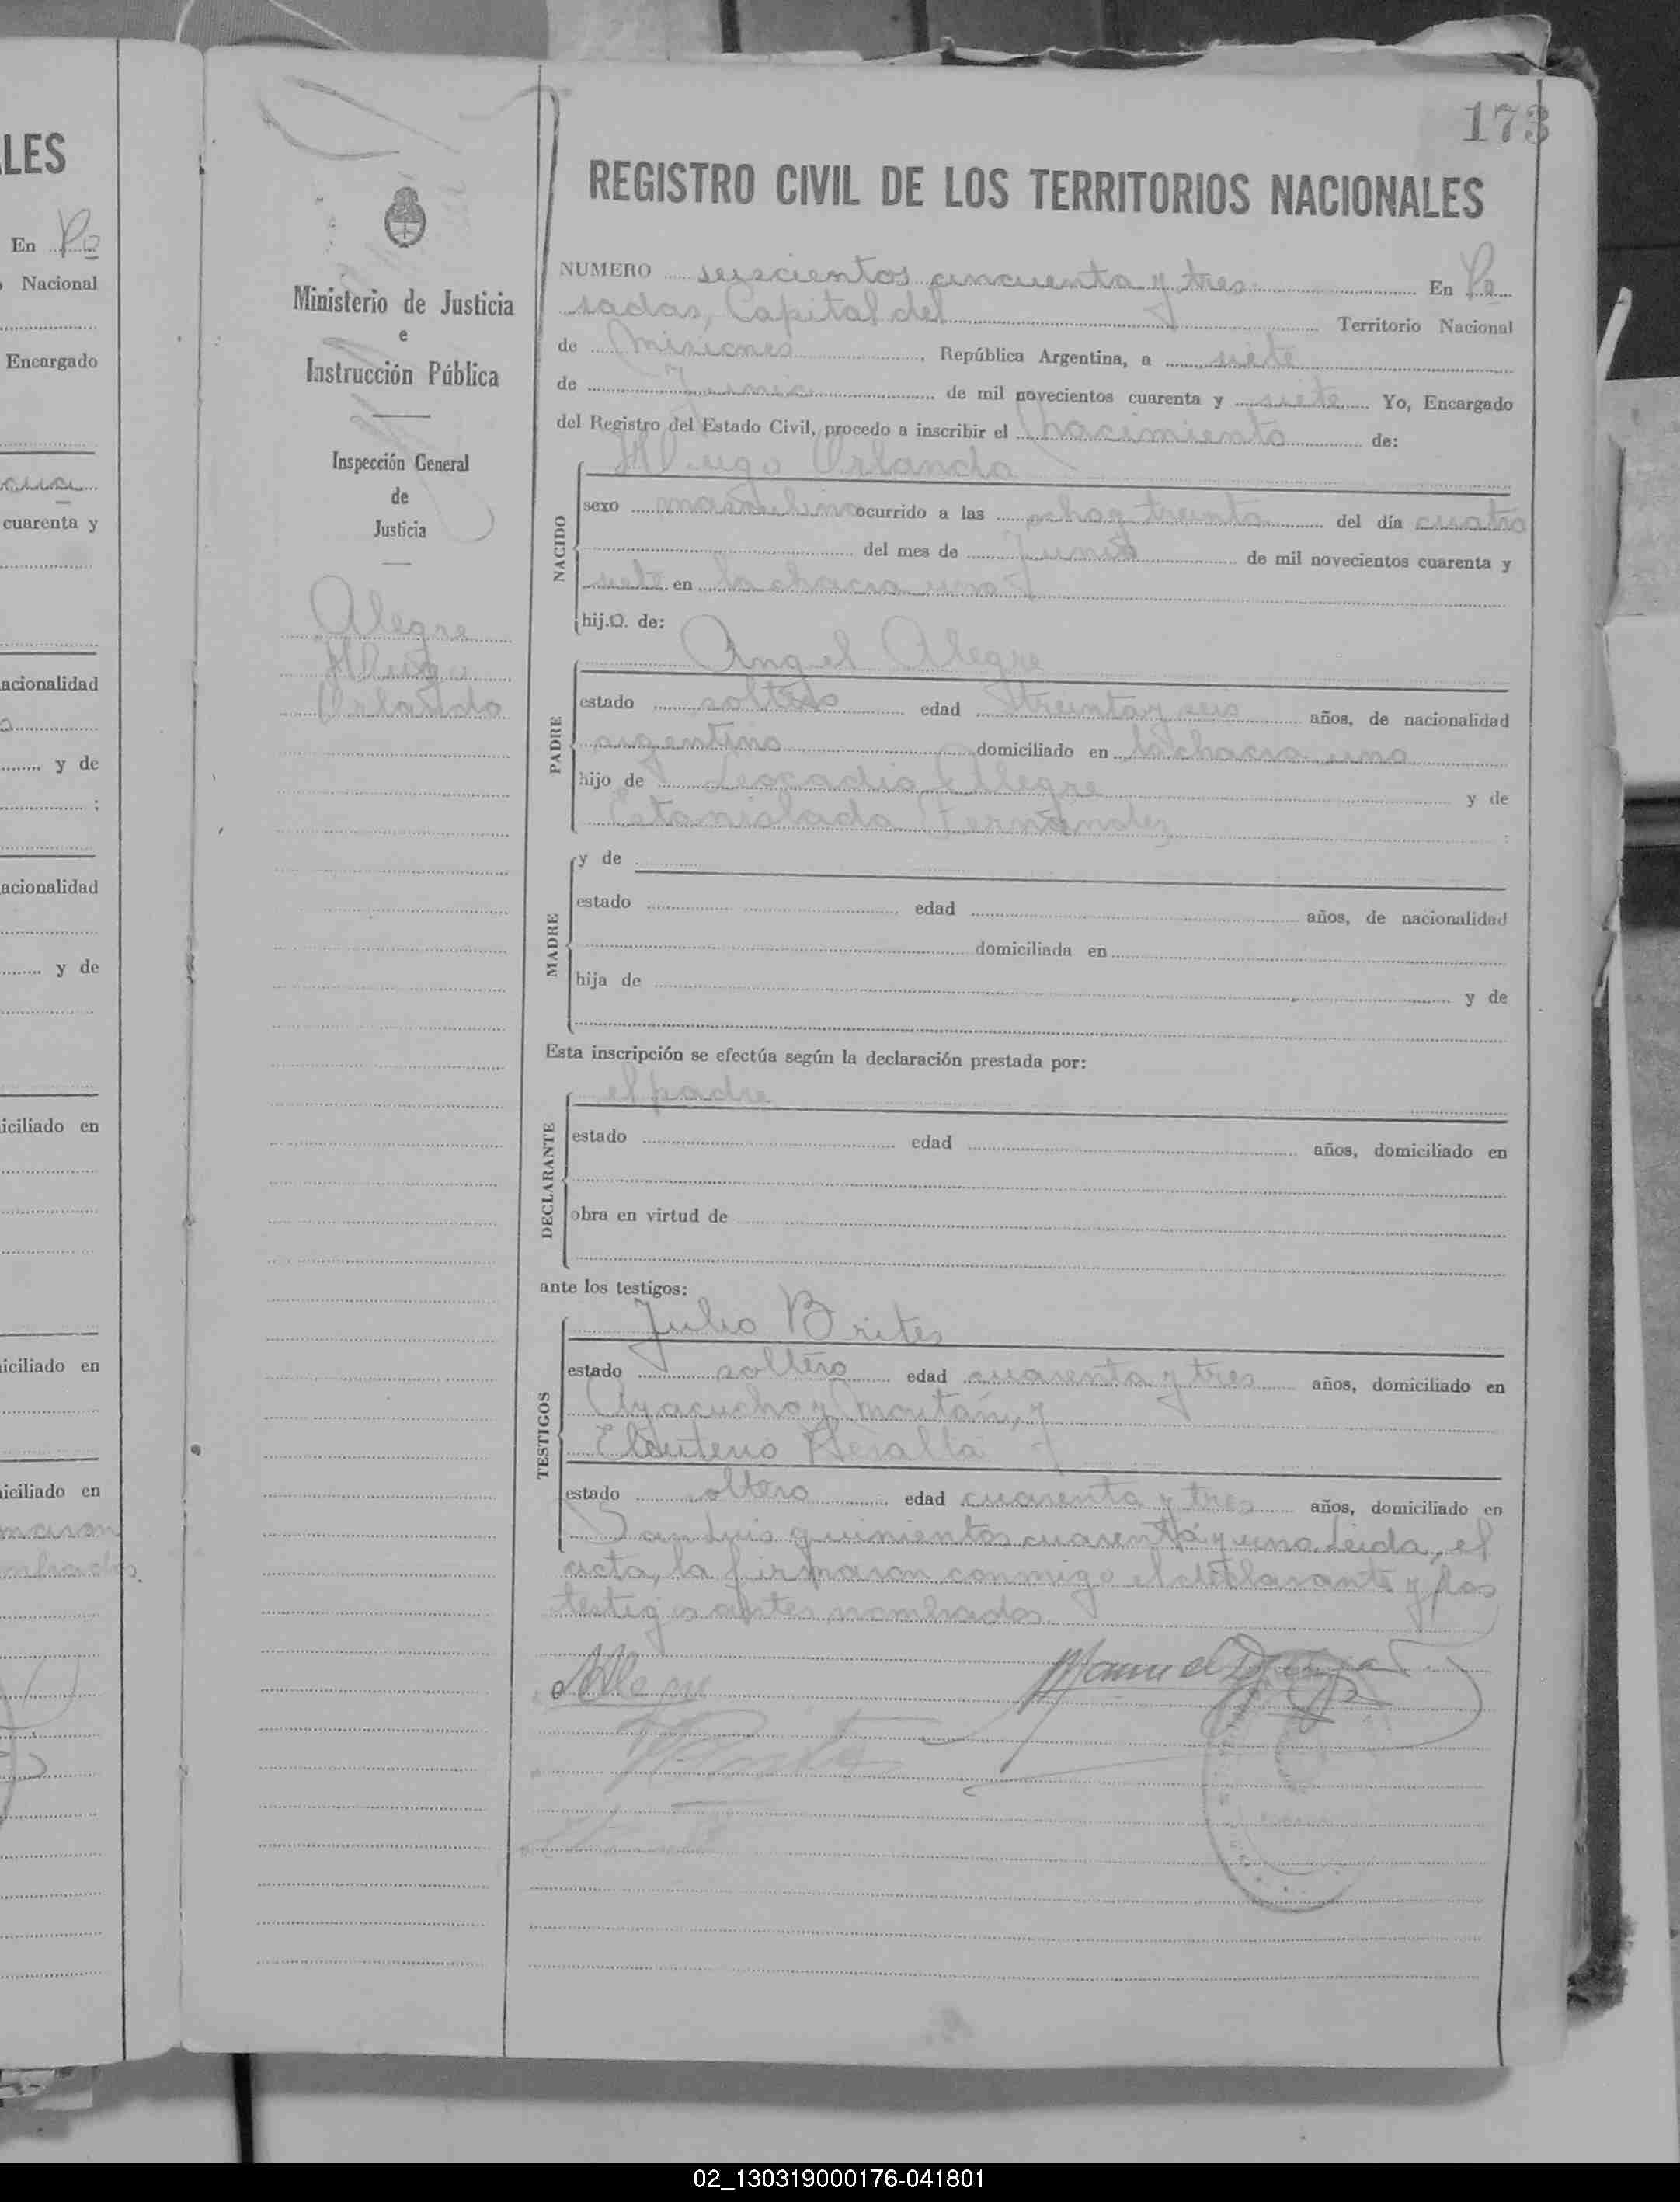 173
REGISTRO CIVIL DE LOS TERRITORIOS NACIONALES
Ministerio de Justicia
e
Instrucción Pública
Inspección General
de
Justicia
Alegre
Hugo
Orlando
NUMERO seiscientos cincuenta y tres En Po
sadas, Capital del Territorio Nacional
de Misiones, República Argentina, a siete
de Junio de mil novecientos cuarenta y siete Yo, Encargado
del Registro del Estado Civil, procedo a inscribir el nacimiento de:
NACIDO
Hugo Orlando
sexo masculino ocurrido a las ocho y treinta del día cuatro
del mes de Junio de mil novecientos cuarenta y
siete en la chacra uno
hij.o. de:
PADRE
Angel Alegre
estado soltero edad treinta y seis años, de nacionalidad
argentino domiciliado en la chacra uno
hijo de Leocadio Alegre y de
Estanislada Fernández
MADRE
y de
estado edad años, de nacionalidad
domiciliada en
hija de y de
Esta inscripción se efectúa según la declaración prestada por:
DECLARANTE
el padre
estado edad años, domiciliado en
obra en virtud de
ante los testigos:
TESTIGOS
Julio Brites
estado soltero edad cuarenta y tres años, domiciliado en
Ayacucho y y
Eleuterio Peralta
estado soltero edad cuarenta y tres años, domiciliado en
San Luis quinientos cuarenta y uno. Leida, el
acta, la firmaron conmigo el declarante y los
testigos antes nombrados.
ALES
En Po
Nacional
Encargado
cuarenta y
acionalidad
y de
;
acionalidad
y de
iciliado en
iciliado en
iciliado en
02_130319000176-041801